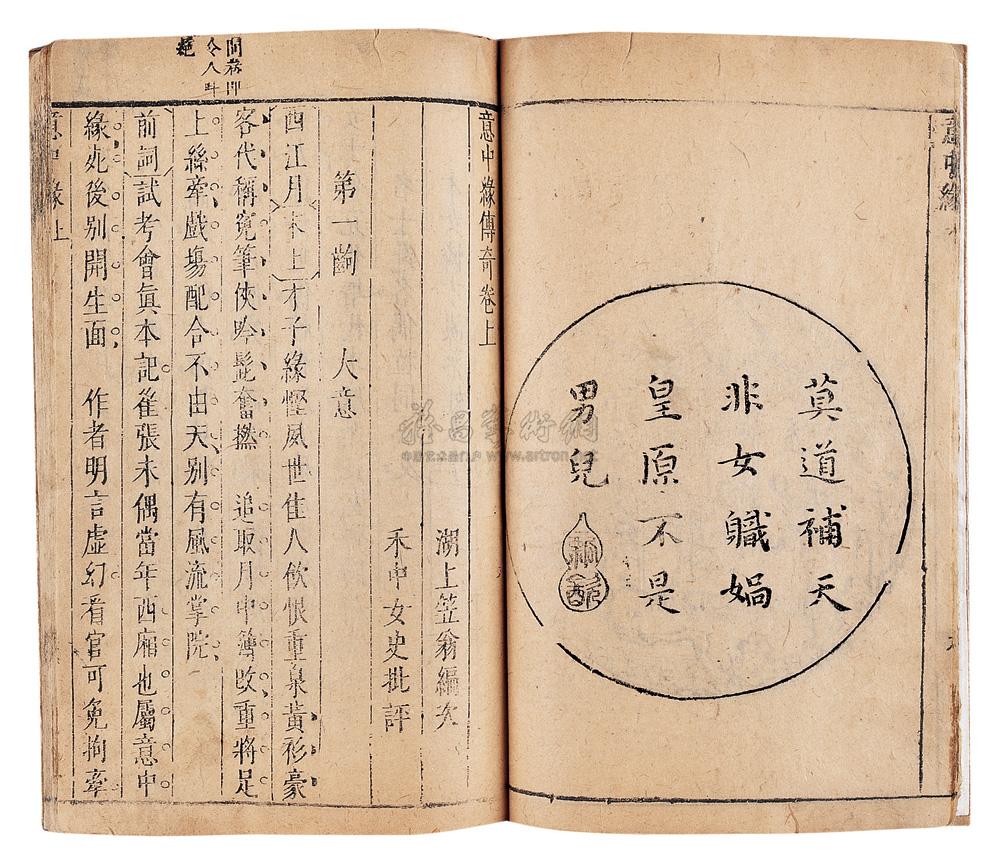 意中緣
莫道補天
非女職媧
皇原不是
男兒
意中緣傳奇卷上
湖上笠翁編次
禾中女史批評
第一齣 大意
西江月 末上 才子緣慳夙世佳人飲恨重泉黃衫豪
客代稱寃筆俠吟髭奮撚 追取月中簿改重將足
上絲牽戲塲配合不由天別有風流掌院
前詞 試考會眞本記崔張未偶當年西廂也屬意中
緣死後別開生面 作者明言虛幻看官可免拘牽
意中緣 上
開卷即
令人叫
絕
雅昌藝術網
www.artron.net